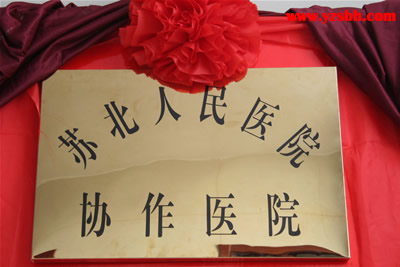 www.yzsbh.com
苏北人民医院
协作医院